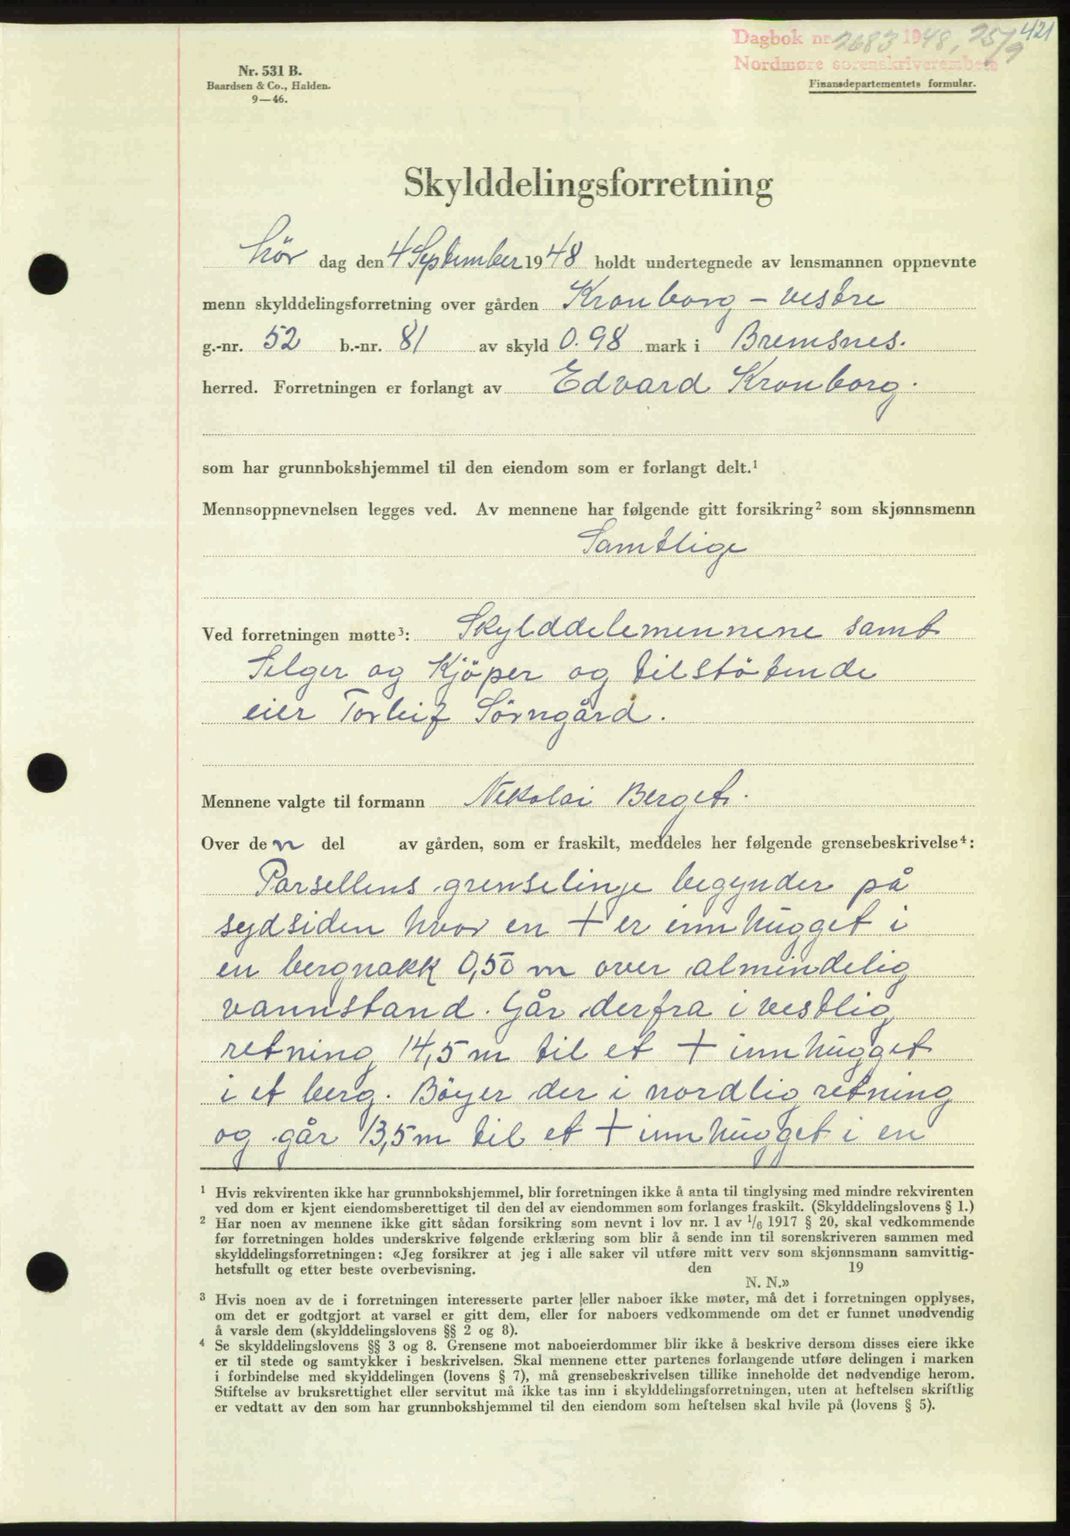 421
Dagbok nr. 2683 1948, 25/9
Nordmøre sorenskriverembete
Nr. 531 B.
Baardsen & Co., Halden.
9—46.
Finansdepartementets formular.
Skylddelingsforretning
Lör dag den 4 September 1948 holdt undertegnede av lensmannen oppnevnte
menn skylddelingsforretning over gården Kronborg - vestre
g.-nr. 52 b.-nr. 81 av skyld 0.98 mark i Bremsnes.
herred. Forretningen er forlangt av Edvard Kronborg.
som har grunnbokshjemmel til den eiendom som er forlangt delt.¹
Mennsoppnevnelsen legges ved. Av mennene har følgende gitt forsikring² som skjønnsmenn
Samtlige
Ved forretningen møtte³: Skylddelemennene samt
Selger og Kjöper og tilstötende
eier Torleif Sörngård.
Mennene valgte til formann Nekolai Berget.
Over den del av gården, som er fraskilt, meddeles her følgende grensebeskrivelse⁴:
Parsellens grenselinje begynder på
sydsiden hvor en + er innhugget i
en bergnakk 0,50 m over almindelig
vannstand. Går derfra i vestlig
retning 14,5 m til et + innhugget
i et berg. Böyer der i nordlig retning
og går 13,5 m til et + innhugget i en
¹ Hvis rekvirenten ikke har grunnbokshjemmel, blir forretningen ikke å anta til tinglysing med mindre rekvirenten
ved dom er kjent eiendomsberettiget til den del av eiendommen som forlanges fraskilt. (Skylddelingslovens § 1.)
² Har noen av mennene ikke gitt sådan forsikring som nevnt i lov nr. 1 av 1/6 1917 § 20, skal vedkommende
før forretningen holdes underskrive følgende erklæring som blir å sende inn til sorenskriveren sammen med
skylddelingsforretningen: «Jeg forsikrer at jeg i alle saker vil utføre mitt verv som skjønnsmann samvittig-
hetsfullt og etter beste overbevisning. den 19
N. N.»
³ Hvis noen av de i forretningen interesserte parter eller naboer ikke møter, må det i forretningen opplyses,
om det er godtgjort at varsel er gitt dem, eller for naboers vedkommende om det er funnet unødvendig
å varsle dem (skylddelingslovens §§ 2 og 8).
⁴ Se skylddelingslovens §§ 3 og 8. Grensene mot naboeierdommer blir ikke å beskrive dersom disses eiere ikke
er til stede og samtykker i beskrivelsen. Skal mennene etter partenes forlangende utføre delingen i marken
i forbindelse med skylddelingen (lovens § 7), må grensebeskrivelsen tillike inneholde det nødvendige herom.
Stiftelse av bruksrettighet eller servitut må ikke tas inn i skylddelingsforretningen, uten at heftelsen skriftlig
er vedtatt av den som har grunnbokshjemmel til den eiendom som heftelsen skal hvile på (lovens § 5).